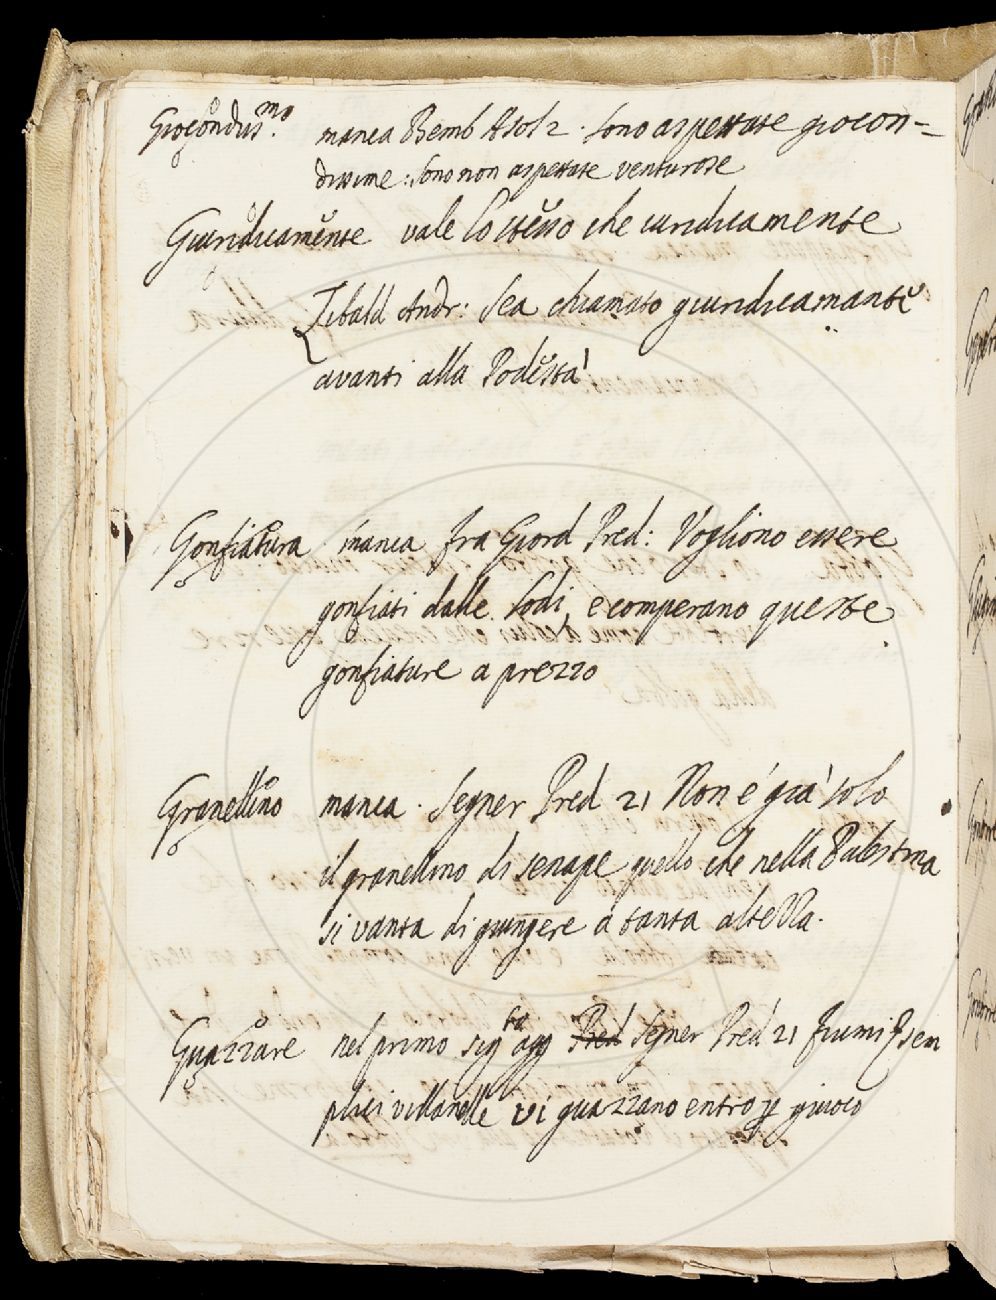 Giocondiss.mo manca Bemb Asol 2. sono aspettate giocon=
dissime: sono non aspettate venturose
Giuridicamente vale lo stesso che iuridicamente
Tibald Andr: sea chiamato giuridicamante
avanti alla Podestà
Gonfiatura manca fra Giord Pred: Vogliono essere
gonfiati dalle lodi, e comperano queste
gonfiature a prezzo
Granellino manca. Segner Pred 21 Non é già solo
il granellino di senape quello che nella Palestina
si vanta di giungere a tanta altezza.
Guazzare nel primo sigto agg Pred Segner Pred 21 Fiumi Sem
plici villanelle vi guazzano entro p giuoco